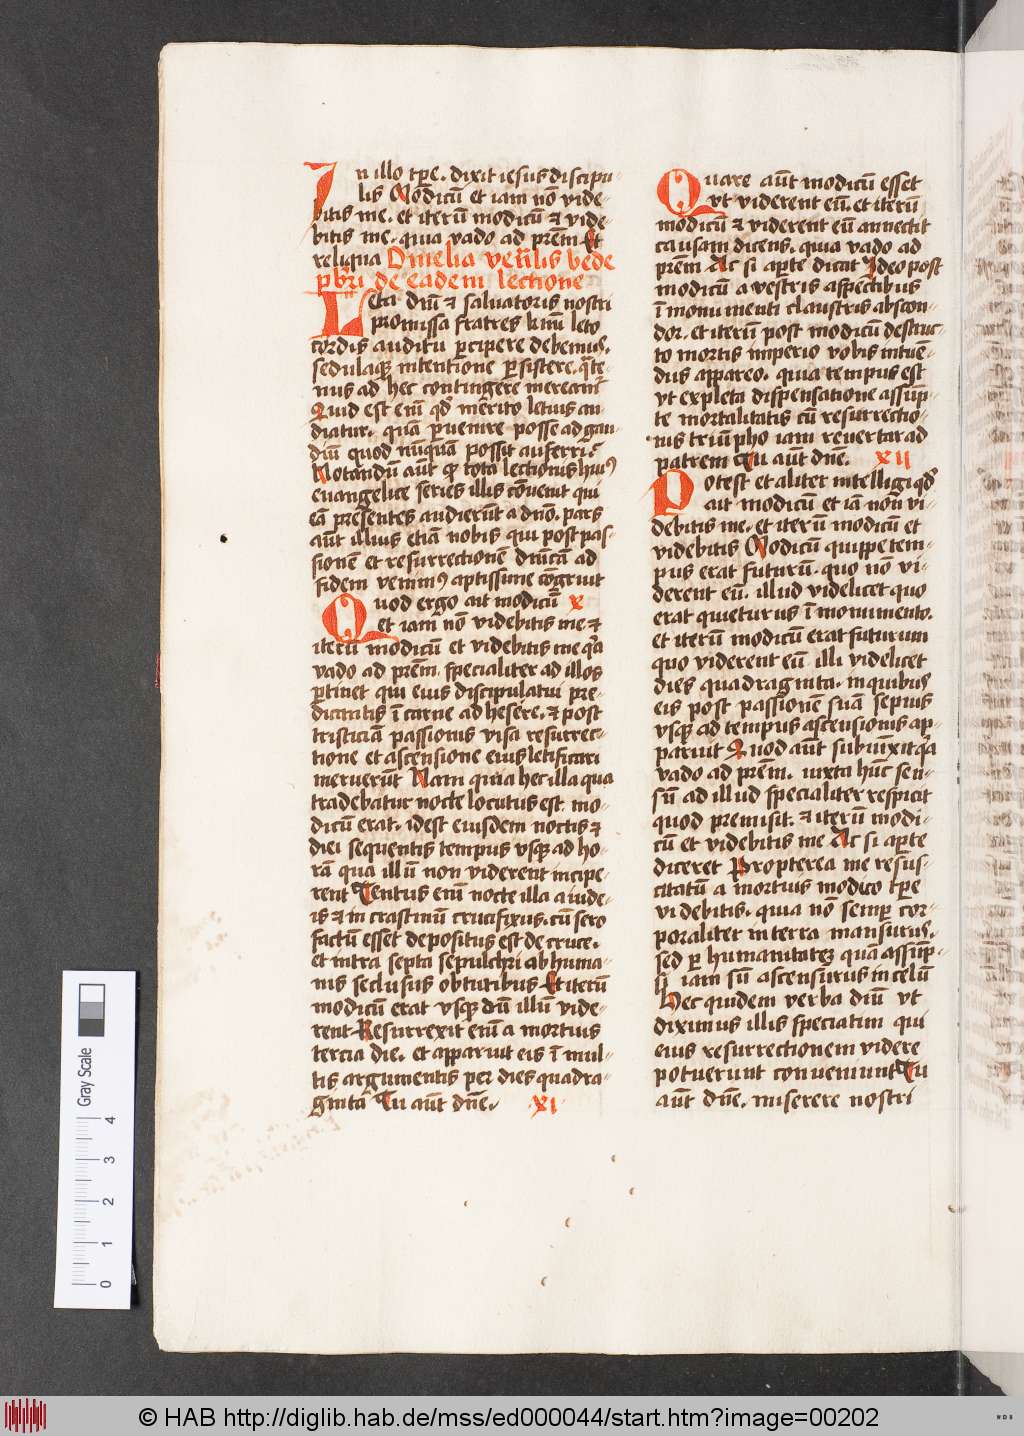 In illo tꝑe. dixit iesus discipu-
lis Modicū et iam nō vide-
bitis me. et iterū modicū ⁊ vide-
bitis me. quia vado ad prēm Et
reliqua Omelia veñlis bede
pb̄ri de eadem lectione
Leta dn̄i ⁊ saluatoris nostri
promissa fratres kmī leto
cordis auditu ꝑcipere debemus.
sedulaqꝫ intentione ꝑsistere. q̄te-
nus ad hec contingere mereamʳ
Quid est em̄ qd̓ merito letius au-
diatur. quā ꝑuenire posse ad gau-
diū quod nūquā possit auferri.
Notandū aūt qꝫ tota lectionis huiꝰ
euangelice series illis cōuenit qui
eā presentes audierūt a dn̄o. pars
aūt illius etiā nobis qui post pas-
sionē et resurrectionē dn̄icā ad
fidem venimꝰ aptissime cōgruit
Quod ergo ait modicū x
et iam nō videbitis me ⁊
iterū modicū et videbitis me q̓a
vado ad prēm. specialiter ad illos
ꝑtinet qui eius discipulatui pre-
dicantis ī carne ad hesere. ⁊ post
tristiciā passionis visa resurrec-
tione et ascensione eius letificari
meruerūt Nam quia hec illa qua
tradebatur nocte locutus est. mo-
dicū erat. idest eiusdem noctis ⁊
diei sequentis tempus vsqꝫ ad ho-
rā qua illū non viderent incipe-
rent Tentus em̄ nocte illa a iude-
is ⁊ in crastinū crucifixus. cū sero
factū esset depositus est de cruce.
et intra septa sepulchri ab huma-
nis seclusus obtutibus Et iterū
modicū erat vsqꝫ dū illū vide-
rent Resurrexit em̄ a mortuis
tercia die. et apparuit eis ī mul-
tis argumentis per dies quadra-
gintā Tu aūt dn̄e. xi
Quare aūt modicū esset
vt viderent eū. et iterū
modicū ⁊ viderent eū annectit
causam dicens. quia vado ad
prēm Ac si aꝑte dicat Ideo post
modicū a vestris aspectibus
ī monumenti claustris abscon-
dor. et iterū post modicū destruc-
to mortis imperio vobis intuē-
dus appareo. quia tempus est
vt expleta dispensatione assūp-
te mortalitatis cū resurrectio-
nis triūpho iam reuertar ad
patrem Tu aūt dn̄e. xii
Potest et aliter intelligi qd̓
ait modicū et iā non vi-
debitis me. et iterū modicū et
videbitis Modicū quippe tem-
pus erat futurū. quo nō vi-
derent eū. illud videlicet quo
erat quieturus ī monumento.
et iterū modicū erat futurum
quo viderent eū. illi videlicet
dies quadraginta. in quibus
eis post passionē suā sepius
vsqꝫ ad tempus ascensionis ap-
paruit Quod aūt subiūxit q̓a
vado ad prēm. iuxta hūc sen-
sū ad illud specialiter respicit
quod premisit. ⁊ iterū modi-
cū et videbitis me Ac si aꝑte
diceret Propterea me resus-
citatū a mortuis modico tꝑe
videbitis. quia nō semꝑ cor-
poraliter in terra mansurus.
sed ꝑ humanitatē quā assūp-
si iam sū ascensurus in celū
Hec quidem verba dn̄i vt
diximus illis speciatim qui
eius resurrectionem videre
potuerunt conueniunt Tu
aūt dn̄e. miserere nostri
Gray Scale
0 1 2 3 4
© HAB http://diglib.hab.de/mss/ed000044/start.htm?image=00202